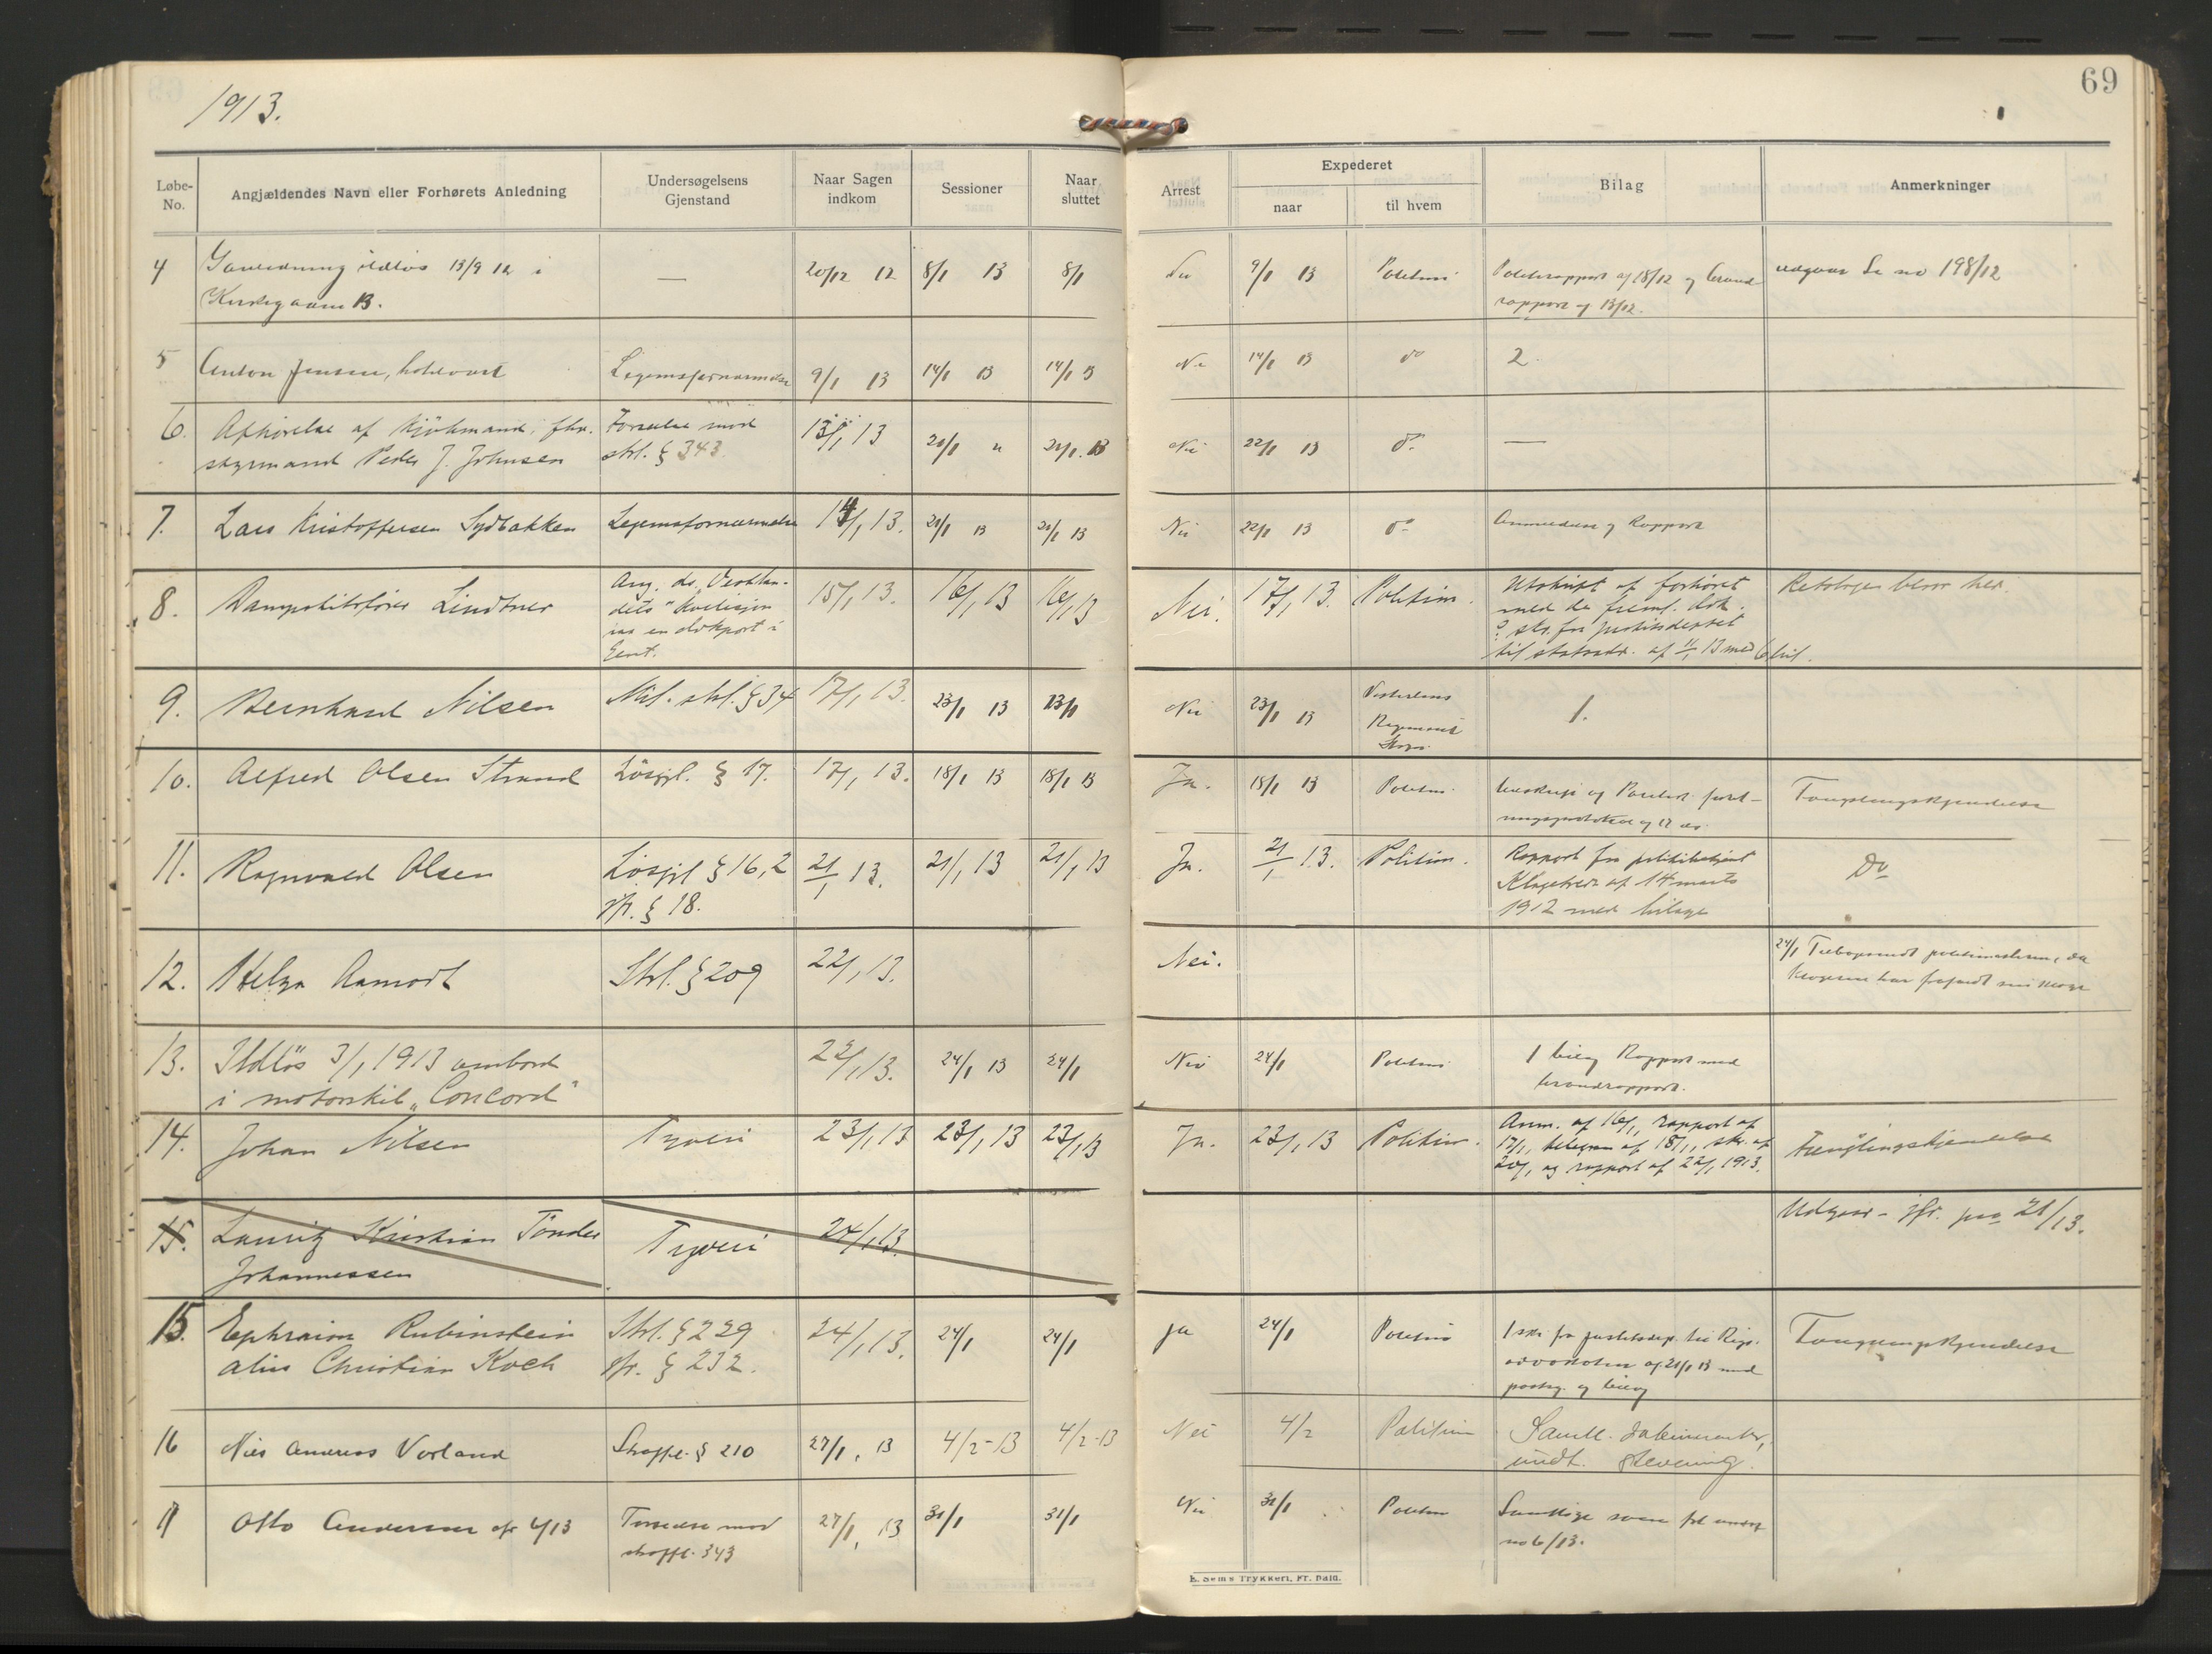 69
1913.
Løbe-No.
Angjældendes Navn eller Forhørets Anledning
Undersøgelsens Gjenstand
Naar Sagen indkom
Sessioner
Naar sluttet
Arrest
Expederet
naar
til hvem
Bilag
Anmerkninger
4 ildløs 13/9 12 i — 20/12 12 8/1 13 8/1 Nei 9/1 13 Politimi Politirapport af 18/12 og brand- udgaar Se no 198/12
B. rapport af 13/12.
5 Anton Jensen, Legemsfornærmelse 9/1 13 14/1 13 14/1 13 Nei 14/1 13 do 2.
6. Afhørelse af kjøkmand, fhv. Forseelse mod 13/1 13 21/1 " 21/1. 13 Nei 22/1 13 do —
styrmand Peder J. Johnsen strl. § 343.
7. Lars Kristoffersen Sydbakken Legemsfornærmelse 14/1 13. 21/1 13 21/1 13 Nei 22/1 13 do Anmeldelse og Rapport
8. Dampskibsfører Lindtner Ang. ds. "Vestlan- 15/1 13. 16/1 13 16/1 13 Nei. 17/1 13. Politim. Utskrift af forhøret her.
dets" kollisjon med de freml. dok.
en dokport i skr. fra justitsdeptet
Gent. til af 11/1 13 med 6 bil.
9. Bernhard Nilsen Mil. strl. § 34 17/1 13. 23/1 13 23/1 Nei 23/1 13 Vesterlens 1.
Regiments
10. Alfred Olsen Strand Løsgjl. § 17. 17/1 13. 18/1 13 18/1 13 Ja. 18/1 13 Politim. Fængslingskjendelse
11. Ragnvald Olsen Løsgjl § 16,2 21/1 13. 21/1 13 21/1 13 Ja. 21/1 13. Politim. Rapport fra politibetjent Do
jfr. § 18. af 14 marts
1912 med bilage
12. Helga Aamodt Strl. § 209 22/1 13. Nei. 24/1 Tilbagesendt politimesteren, da
klageren har frafaldt sin klage
13. Ildløs 3/1 1913 ombord 22/1 13. 24/1 13 24/1 Nei 24/1 Politimi 1 bilag Rapport med
i motorskib "Concord" brandrapport.
14. Johan Nilsen Tyveri 23/1 13 23/1 13 23/1 13 Ja. 23/1 13 Politim. Anm. af 16/1, rapport af Fængslingskjendelse
17/1, telegram af 18/1, skr. af
20/1, og rapport af 22/1 1913.
15. Lauritz Kristian Tønder Tyveri 24/1 13. Udgaar - jfr. 21/13.
Johannessen
15. Ephraim Rubinstein Strl. § 229 24/1 13. 24/1 24/1 ja 24/1 Politimi 1 skr fra justitsdep. til Rigs- Fængslingskjendelse
alias Christian Koch jfr. § 232. advokaten af 21/1 13 med
og bilag
16 Nils Andreas Vorland Straffel. § 210 27/1, 13 4/2-13 4/2-13 Nei 4/2 Politim Saml. dokumenter,
undt. stevning.
17 Otto Andersen cfr 6/13 Forseelse mod 27/1, 13 31/1 31/1 Nei 31/1 Politim Samtlige
straffl. 343 no 6/13.
E. Sems Trykkeri, Fr. hald.